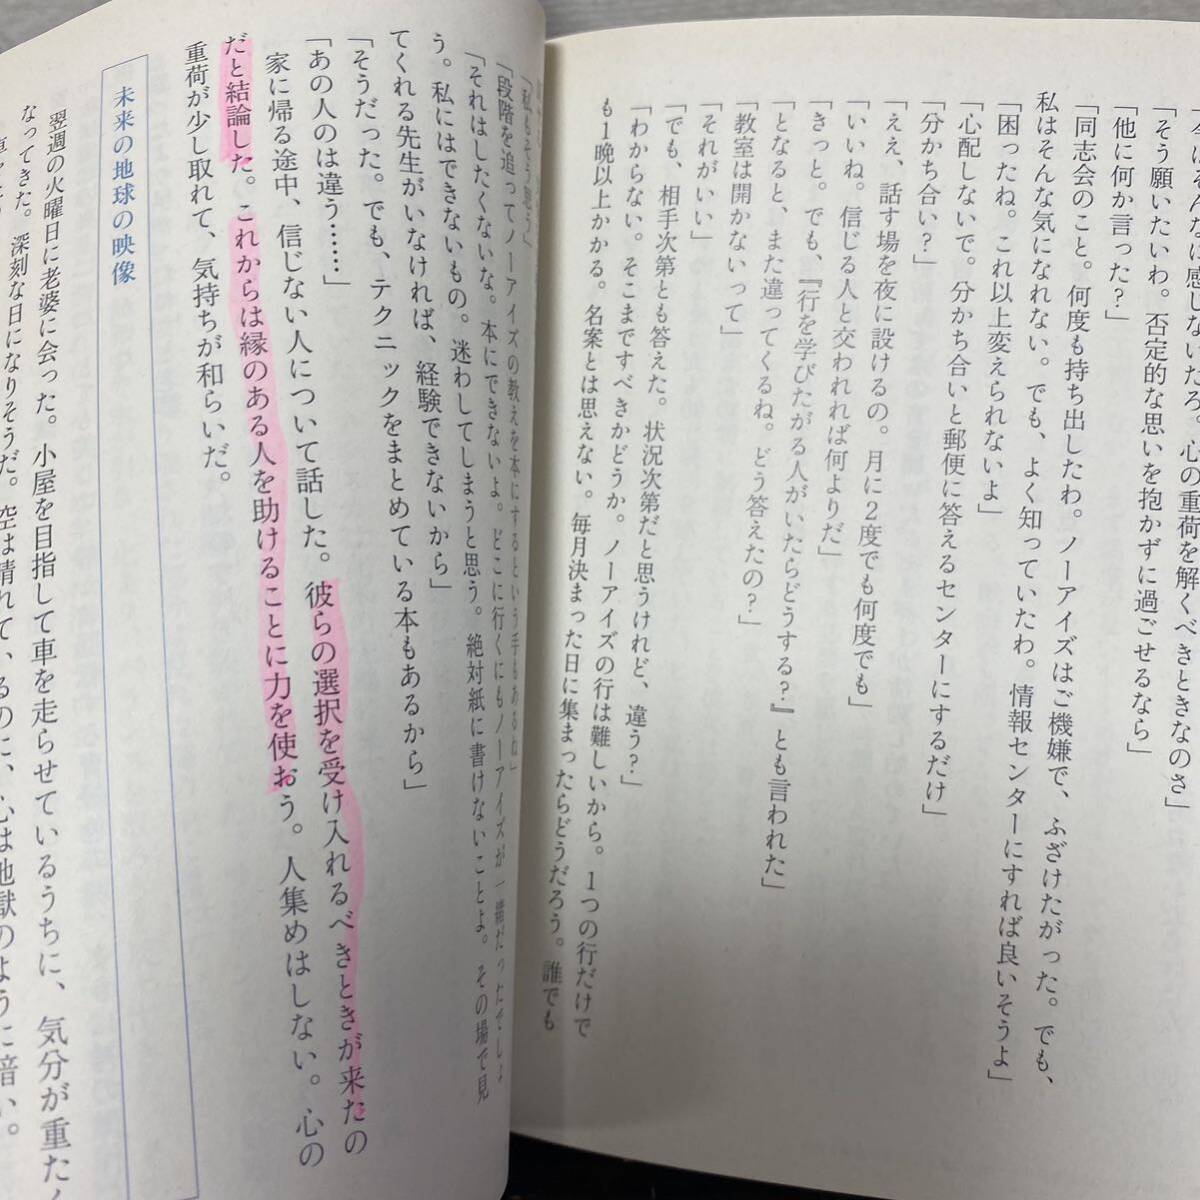 「そう願いたいわ。否定的な思いを抱かずに過ごせるなら」
「他に何か言った?」
「同志会のこと。何度も持ち出したわ。ノーアイズはご機嫌で、ふざけたがった。でも、
私はそんな気になれない。でも、よく知っていたわ。情報センターにすれば良いそうよ」
「困ったね。これ以上変えられないよ」
「心配しないで。分かち合いと郵便に答えるセンターにするだけ」
「分かち合い?」
「ええ、話す場を夜に設けるの。月に2度でも何度でも」
「いいね。信じる人と交われれば何よりだ」
「きっと。でも、『行を学びたがる人がいたらどうする?』とも言われた」
「となると、また違ってくるね。どう答えたの?」
「教室は開かないって」
「それがいい」
「でも、相手次第とも答えた。状況次第だと思うけれど、違う?」
「わからない。そこまですべきかどうか。ノーアイズの行は難しいから。1つの行だけで
も1晩以上かかる。名案とは思えない。毎月決まった日に集まったらどうだろう。誰でも
「私もそう思う」
「段階を追ってノーアイズの教えを本にするという手もあるね」
「それはしたくないな。本にできないよ。どこに行くにもノーアイズが一緒だったでしょ
う。私にはできないもの。迷わしてしまうと思う。絶対紙に書けないことよ。その場で見
てくれる先生がいなければ、経験できないから」
「そうだった。でも、テクニックをまとめている本もあるから」
「あの人のは違う……」
家に帰る途中、信じない人について話した。彼らの選択を受け入れるべきときが来たの
だと結論した。これからは縁のある人を助けることに力を使おう。人集めはしない。心の
重荷が少し取れて、気持ちが和らいだ。
未来の地球の映像
翌週の火曜日に老婆に会った。小屋を目指して車を走らせているうちに、気分が重たく
なってきた。深刻な日になりそうだ。空は晴れているのに、心は地獄のように暗い。